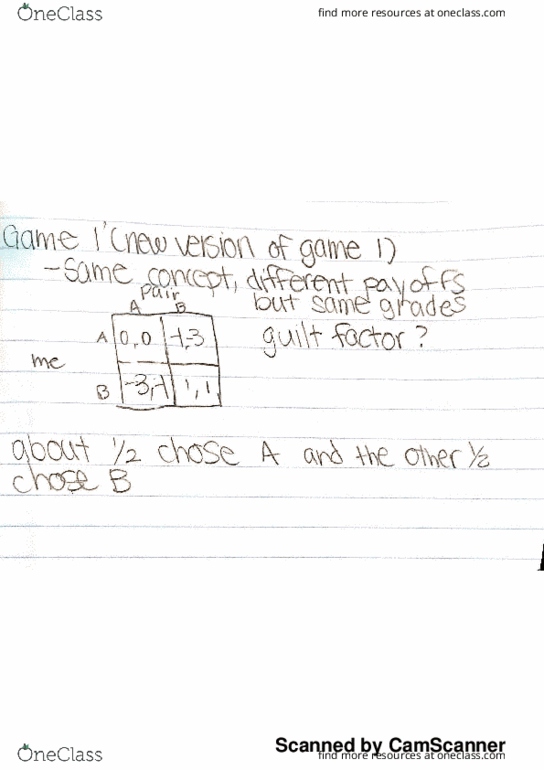 OneClass
find more resources at oneclass.com
Game 1' (new version of game 1)
-Same concept, different payoffs
pair
but same grades
A B
A 0,0 -1,-3
guilt factor?
me
B -3,-1 1,1
about 1/2 chose A and the other 1/2
chose B
Scanned by CamScanner
OneClass
find more resources at oneclass.com